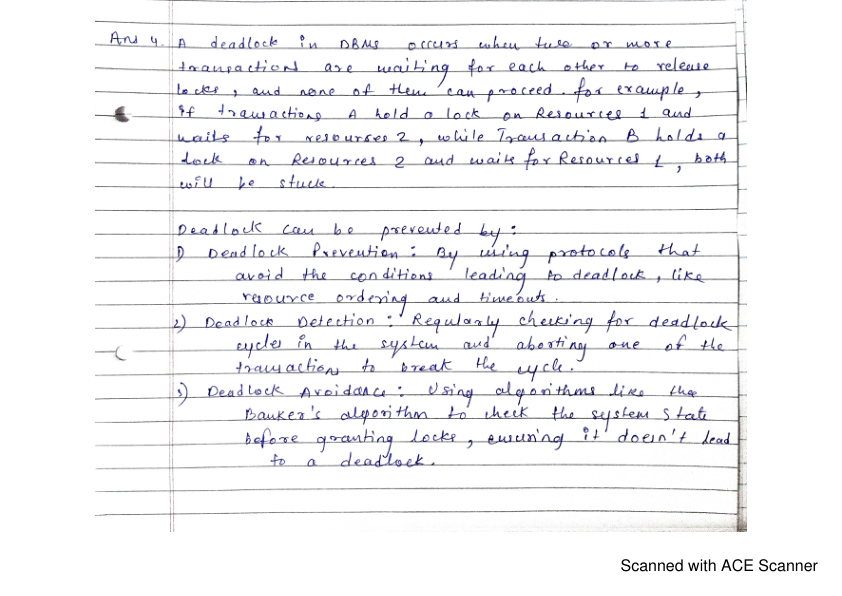 Ans 4. A deadlock in DBMS occurs when two or more
transactions are waiting for each other to release
locks, and none of them can proceed. for example,
if transactions A hold a lock on Resources 1 and
waits for resourses 2, while Transaction B holds a
lock on Resources 2 and waits for Resources 1, both
will be stuck.
Deadlock can be prevented by:
1) Deadlock Prevention: By using protocols that
avoid the conditions leading to deadlock, like
resource ordering and timeouts.
2) Deadlock Detection: Regularly checking for deadlock
cycles in the system and aborting one of the
transactions to break the cycle.
3) Deadlock Avoidance: Using algorithms like the
Banker's algorithm to check the system state
before granting locks, ensuring it doesn't lead
to a deadlock.
Scanned with ACE Scanner